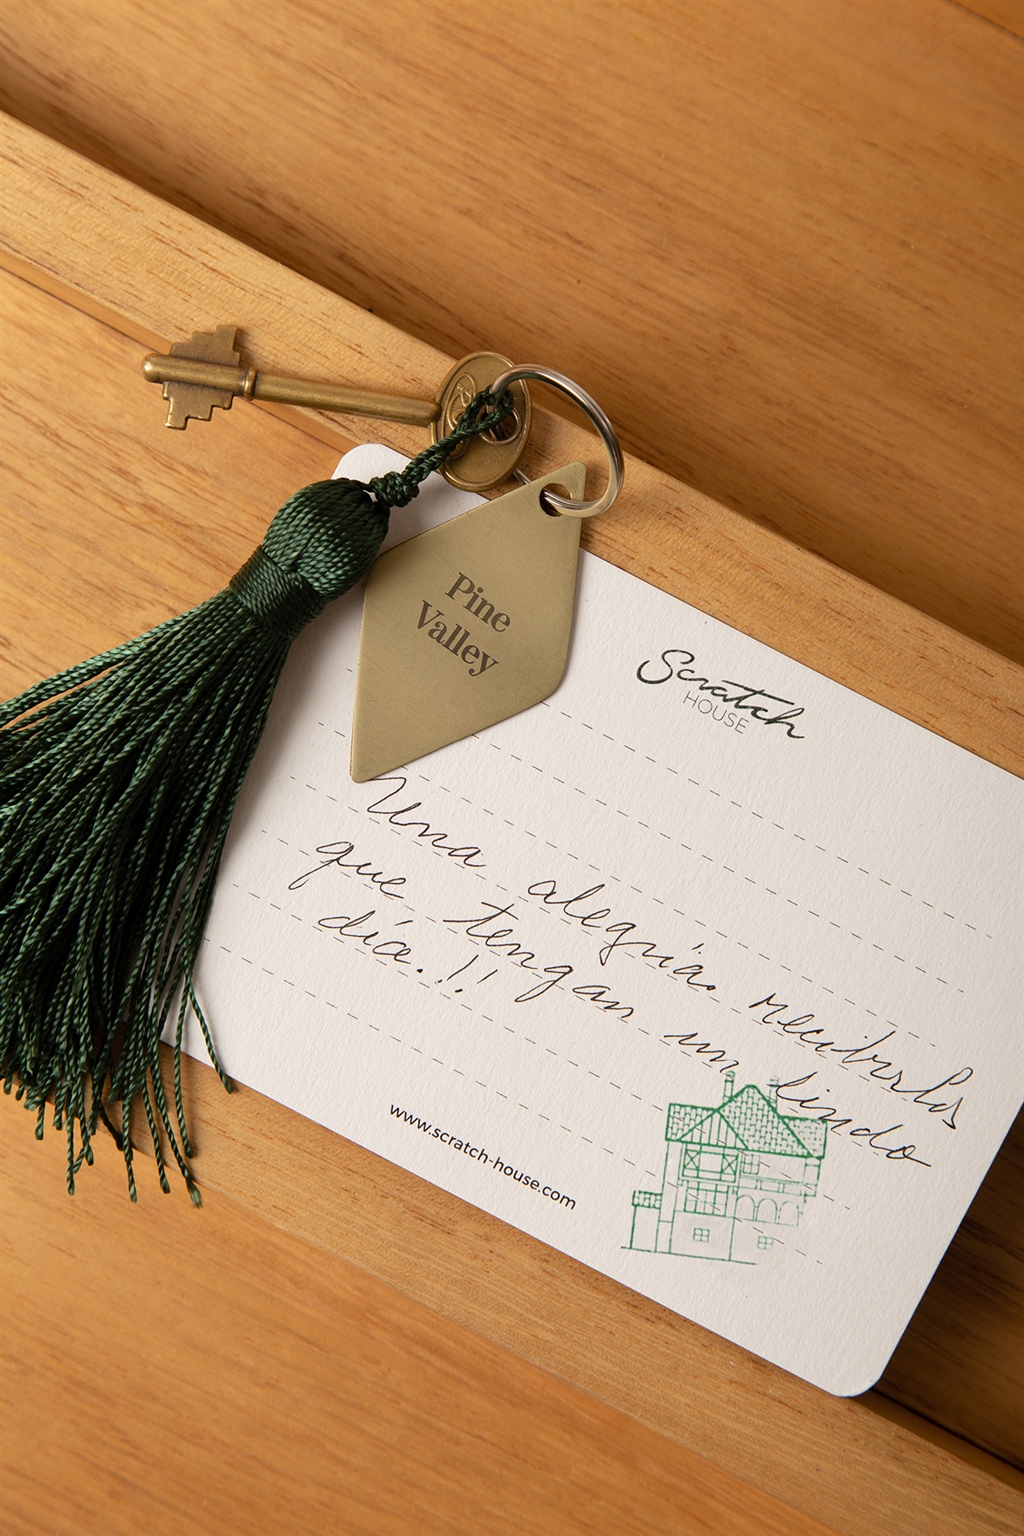 Pine
Valley
Scratch
HOUSE
Una alegría recibirlos
que tengan un lindo
día.!!
www.scratch-house.com